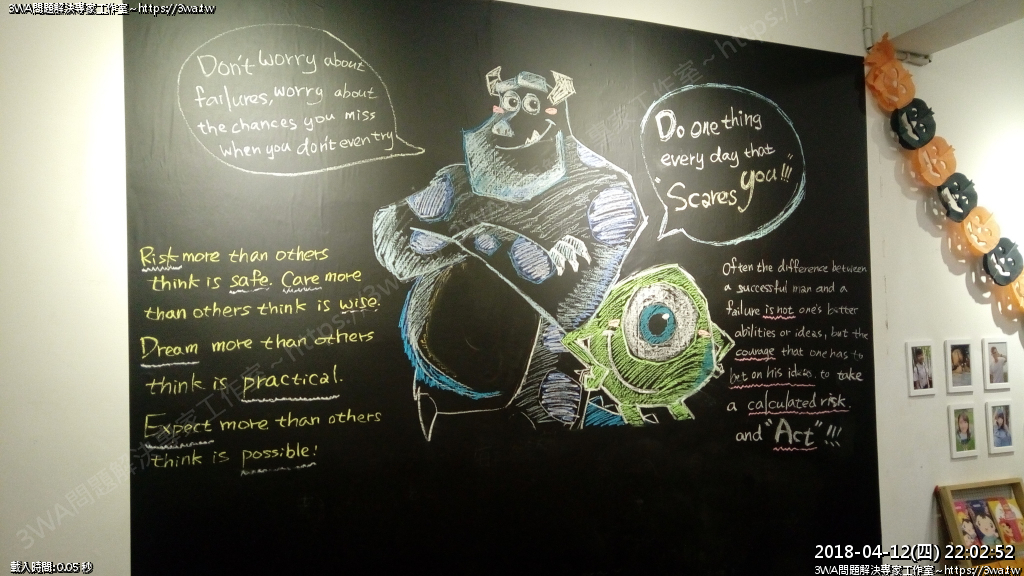 3WA問題解決專家工作室~https://3wa.tw
Don't worry about
failures, worry about
the chances you miss
when you don't even try
Do one thing
every day that
"Scares you!!!"
Risk more than others
think is safe. Care more
than others think is wise.
Dream more than others
think is practical.
Expect more than others
think is possible!
Often the difference between
a successful man and a
failure is not one's better
abilities or ideas, but the
courage that one has to
bet on his ideas, to take
a calculated risk.
and "Act" !!!
載入時間:0.05 秒
2018-04-12(四) 22:02:52
3WA問題解決專家工作室~https://3wa.tw